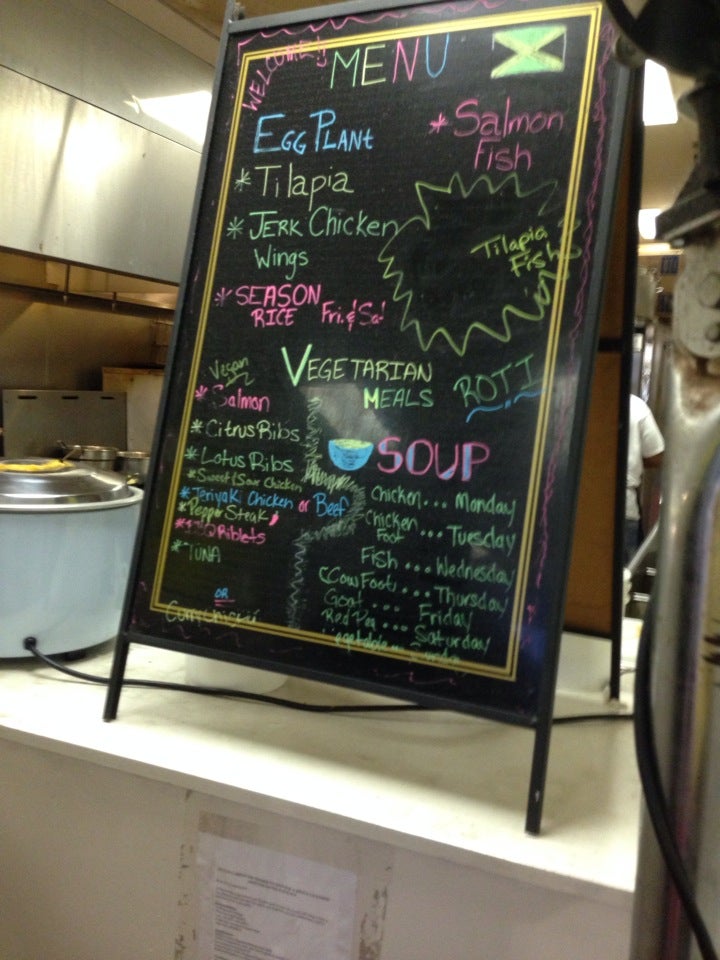 WELCOME!!
MENU
EGG PLANT
* Salmon
Fish
* Tilapia
* JERK Chicken
Wings
Tilapia
Fish
* SEASON
RICE Fri. & Sat
VEGETARIAN
MEALS
ROTI
Vegan
* Salmon
* Citrus Ribs
* Lotus Ribs
* Sweet & Sour Chicken
* Teriyaki Chicken or Beef
* Pepper Steak
* BBQ Riblets
* TUNA
OR
SOUP
Chicken... Monday
Chicken
Foot ... Tuesday
Fish... Wednesday
Cow Foot... Thursday
Goat.... Friday
Red Pea ... Saturday
Vegetable